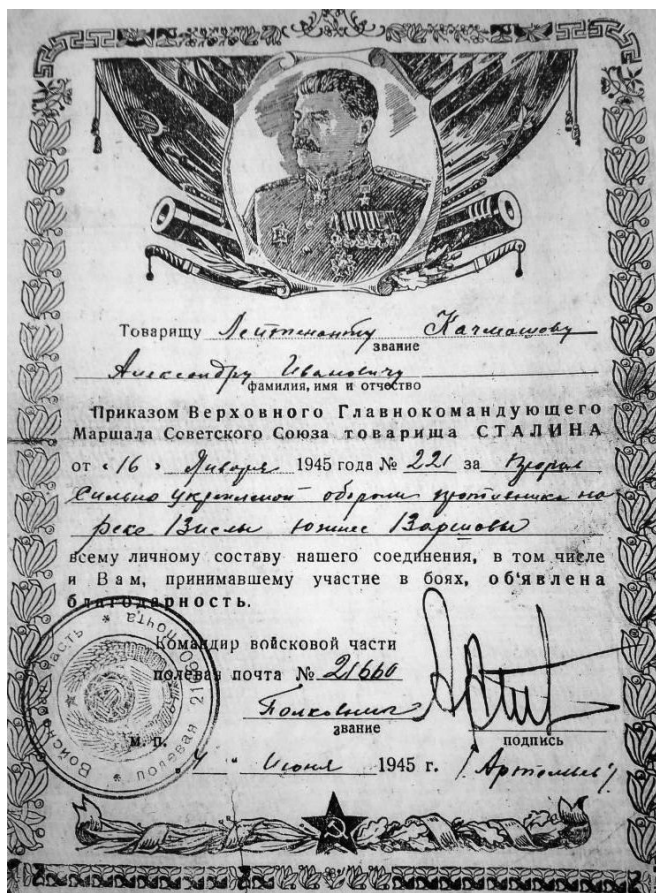 Товарищу Лейтенанту Качмашову
звание
Александру Ивановичу
фамилия, имя и отчество
Приказом Верховного Главнокомандующего
Маршала Советского Союза товарища СТАЛИНА
от «16» Января 1945 года № 221 за прорыв
сильно укрепленой обороны противника на
реке Вислы южнее Варшавы
всему личному составу нашего соединения, в том числе
и Вам, принимавшему участие в боях, об'явлена
благодарность.
Командир войсковой части
полевая почта № 21660
Полковник
звание
подпись
М. П.
4 " Июня 1945 г.
Войсковая часть * полевая почта 21660 *